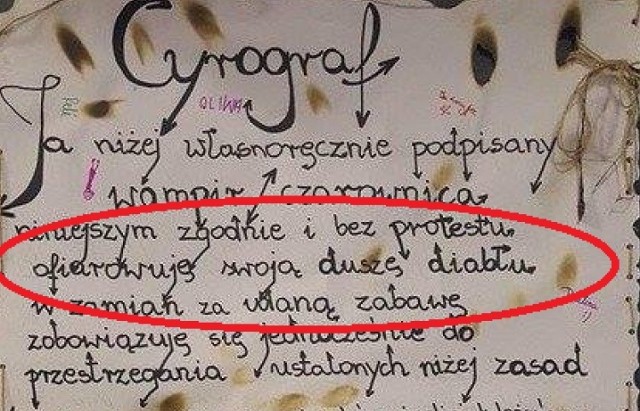 Cyrograf
OLIWA
Ja niżej własnoręcznie podpisany
wampir / czarownica
niniejszym zgodnie i bez protestu
ofiarowuję swoją duszę diabłu
w zamian za udaną zabawę
zobowiązuję się jednocześnie do
przestrzegania ustalonych niżej zasad